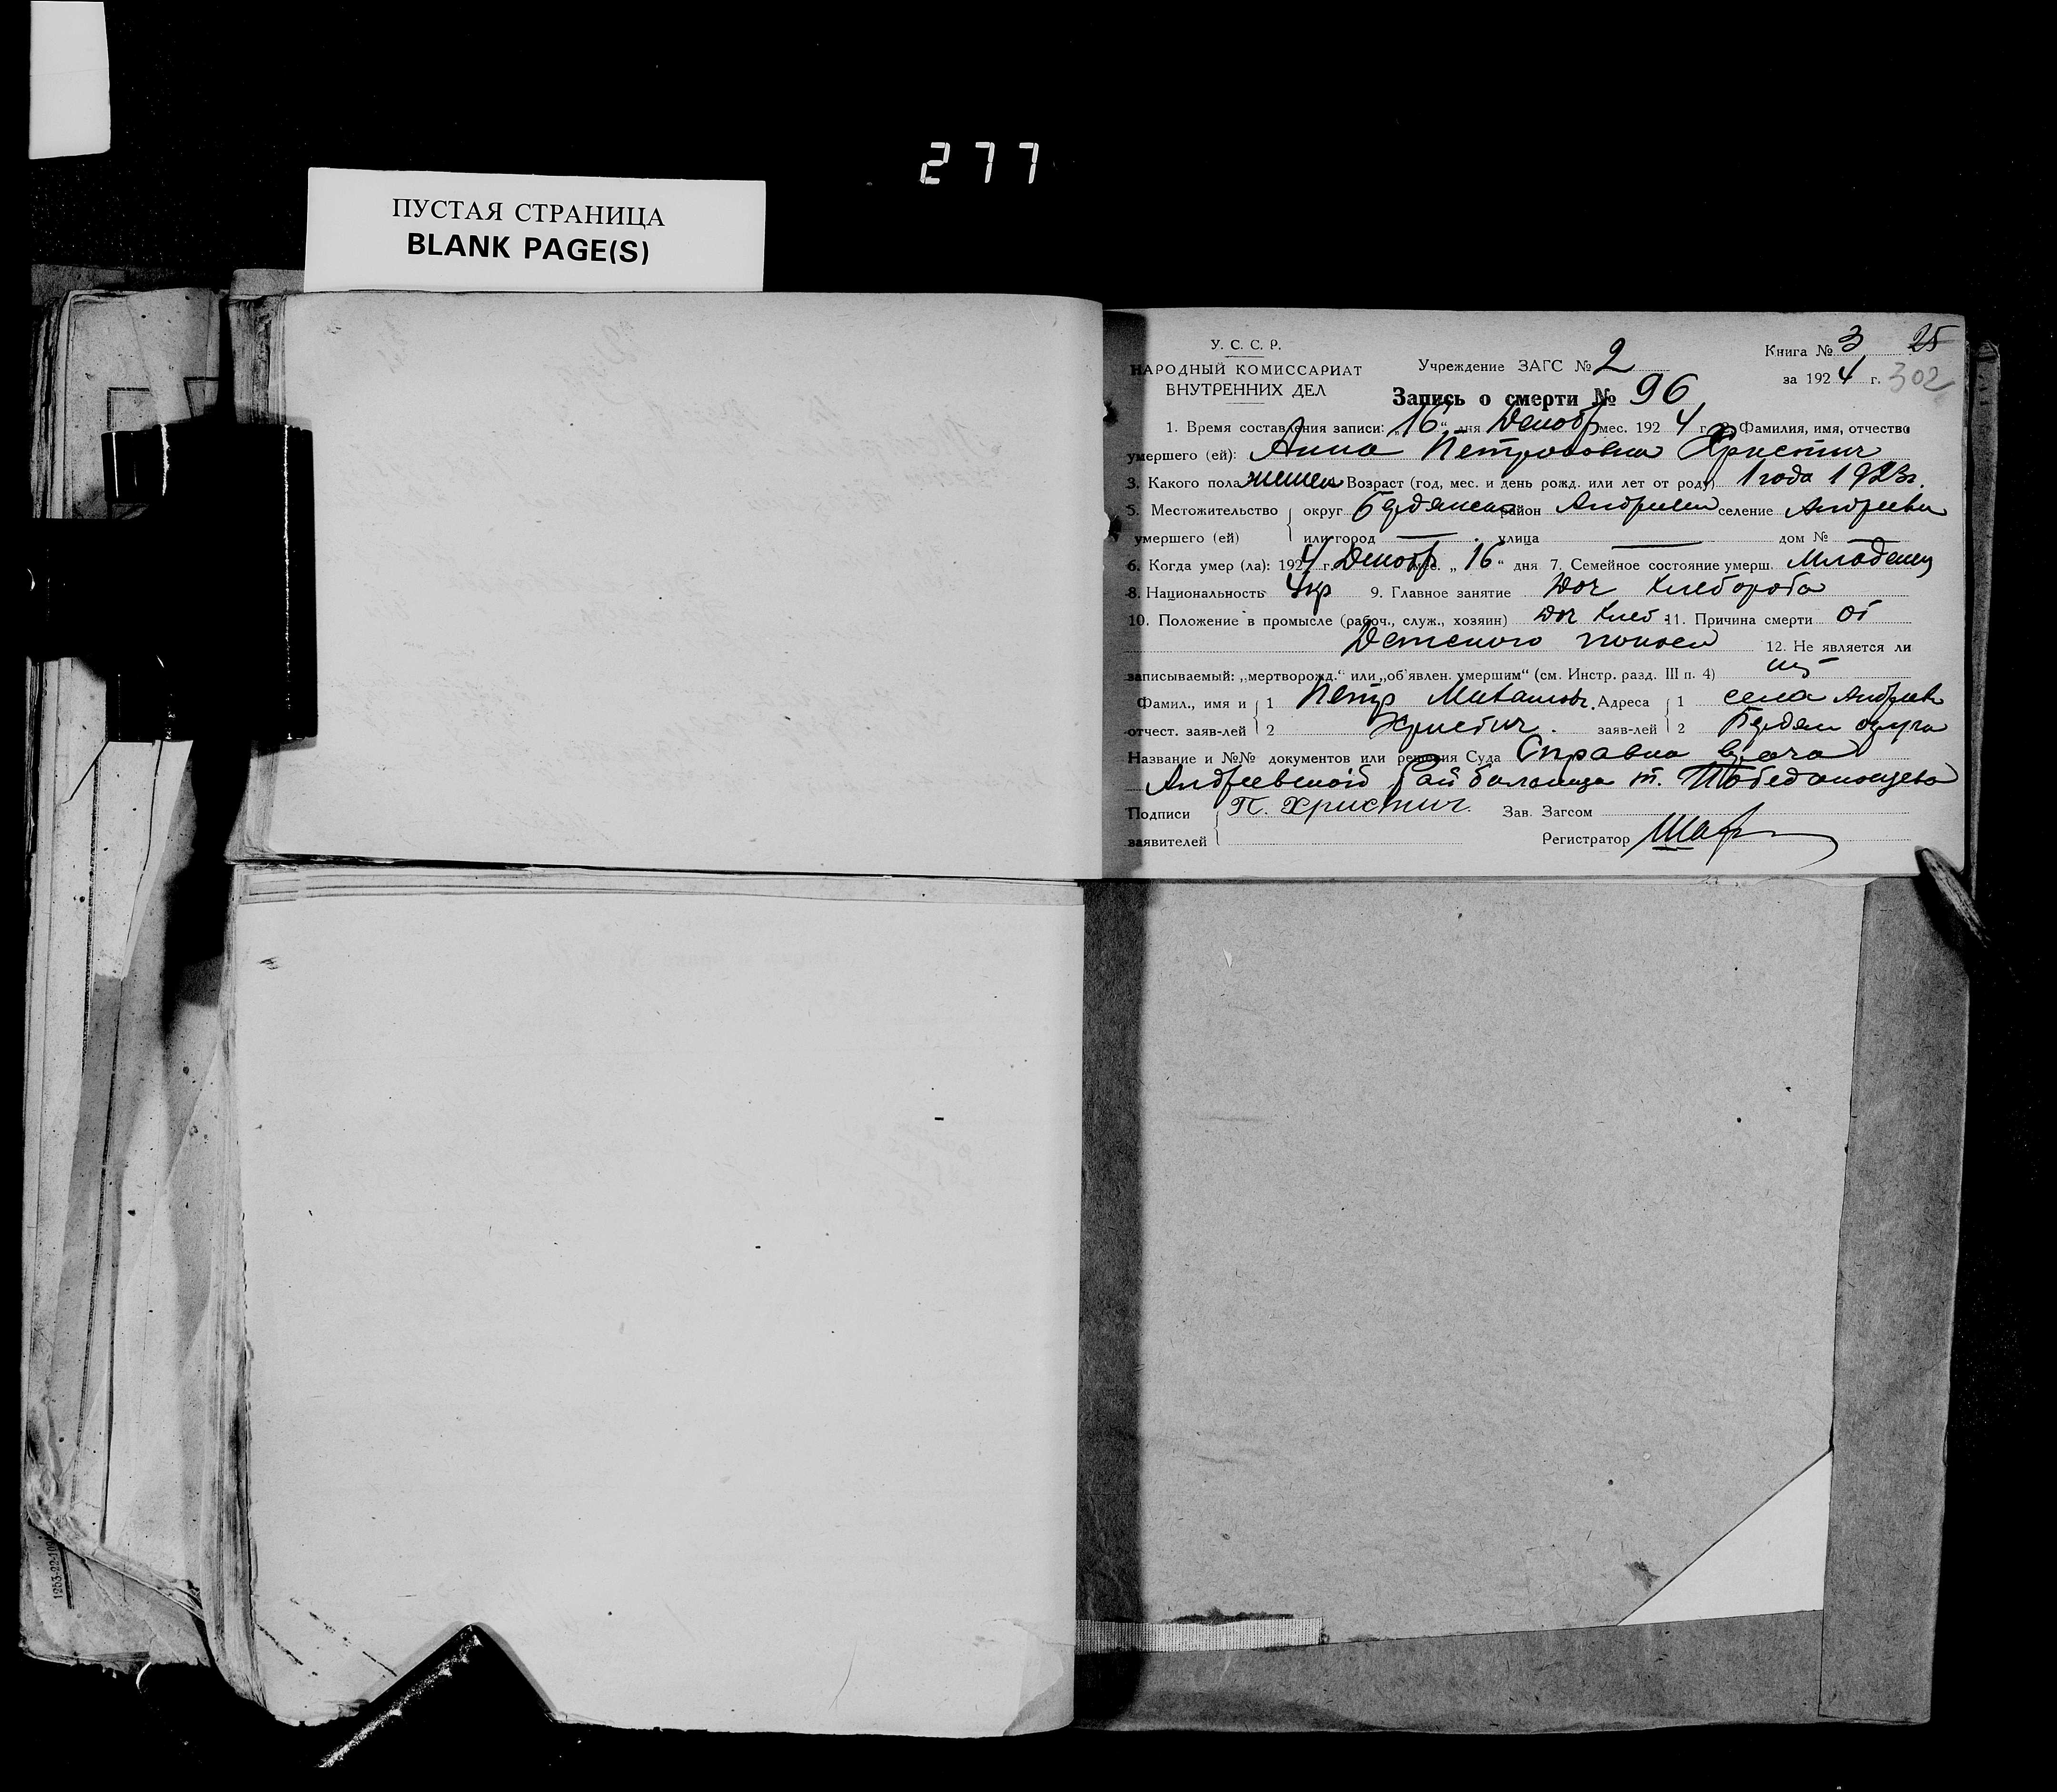 277
ПУСТАЯ СТРАНИЦА
BLANK PAGE(S)
У. С. С. Р.
НАРОДНЫЙ КОМИССАРИАТ
ВНУТРЕННИХ ДЕЛ
Учреждение ЗАГС № 2
Книга № 3 25
за 1924 г. 302
Запись о смерти № 96
1. Время составления записи: „16“ дня Декабр мес. 1924 г. 2. Фамилия, имя, отчество
умершего (ей): Анна Петрововна Христич
3. Какого пола женск Возраст (год, мес. и день рожд. или лет от роду) 1 года 1923г.
5. Местожительство округ Бердянск район Андреев селение Андреевка
умершего (ей) или город — . улица — дом № —
6. Когда умер (ла): 1924 г. Декабр мес. „16“ дня 7. Семейное состояние умерш. Младенец
8. Национальность Укр 9. Главное занятие Доч Хлебороба
10. Положение в промысле (рабоч., служ., хозяин) Доч Хлеб 11. Причина смерти от
Детского поноса 12. Не является ли
записываемый: „мертворожд.“ или „об'явлен. умершим“ (см. Инстр. разд. III п. 4)
Фамил., имя и 1 Петр Михайлов. Адреса 1 села Андреевк
отчест. заяв-лей 2 Христич. заяв-лей 2 Бердян округа
Название и №№ документов или решения Суда Справка врача
Андреевской Рай больницы т. Победоносцева
Подписи П. Христич. Зав. Загсом
заявителей Регистратор
1253-22-109